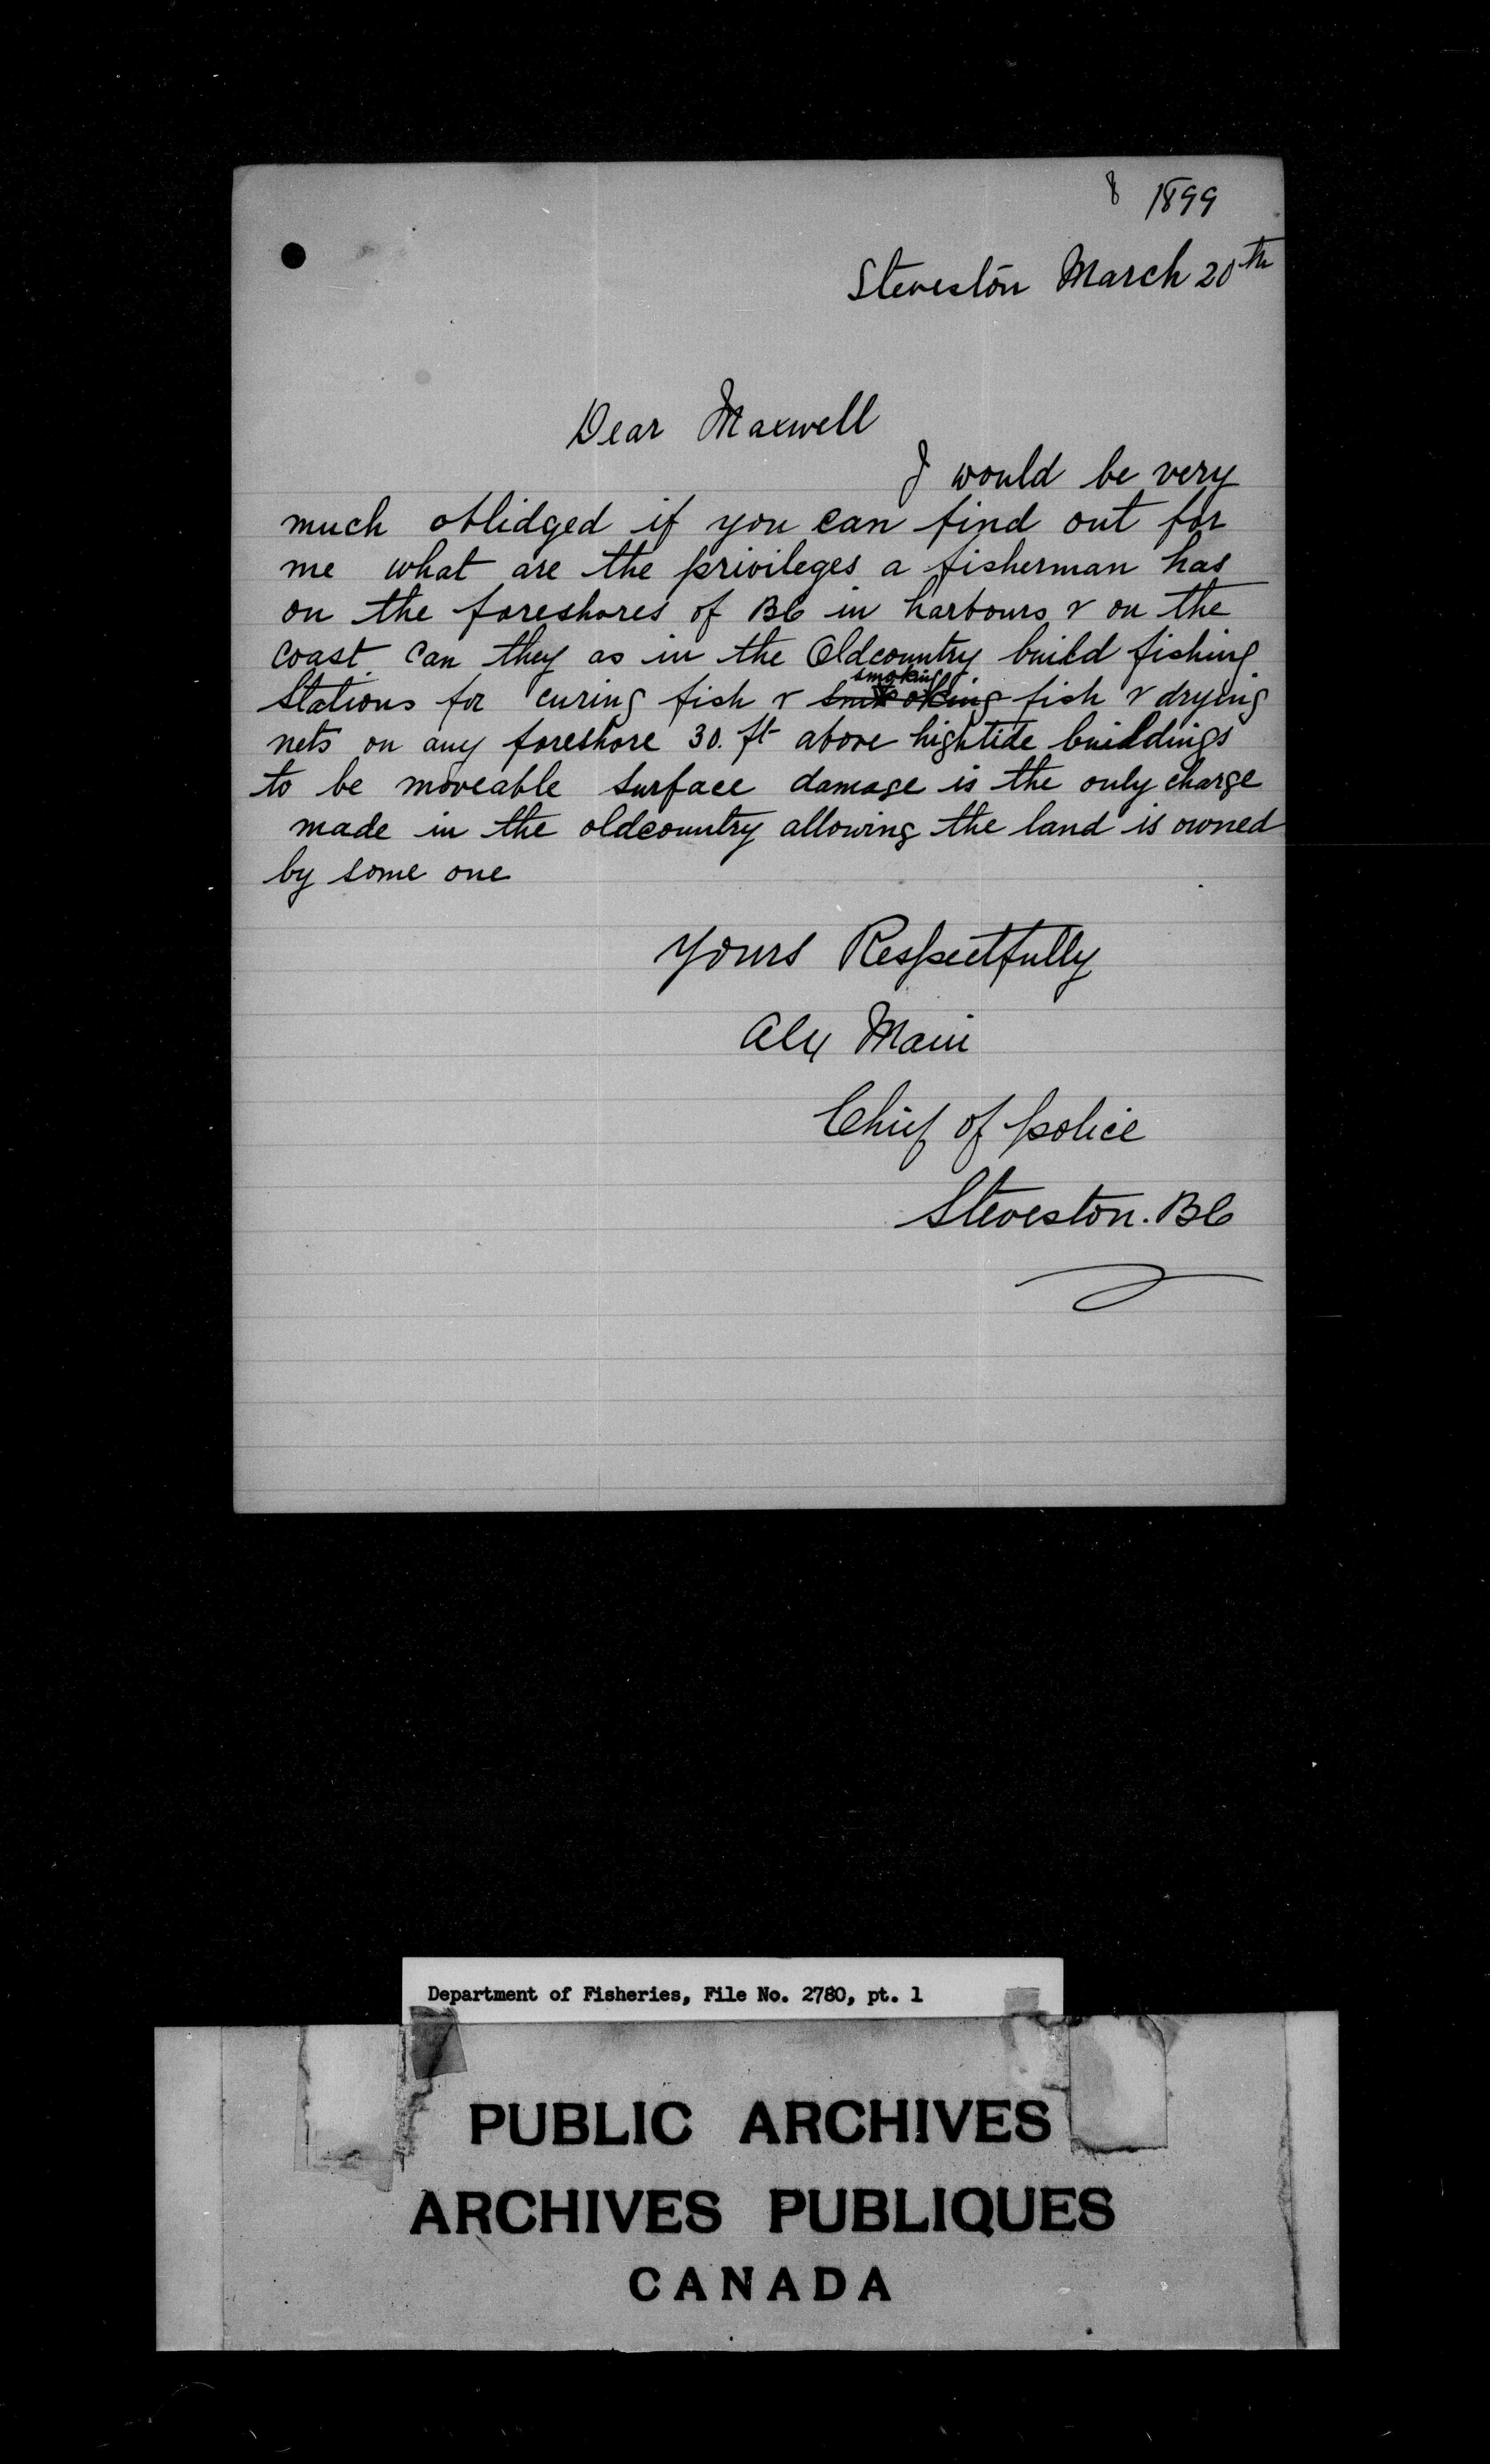 8 1899
Steveston March 20th
Dear Maxwell
I would be very
much oblidged if you can find out for
me what are the privileges a fisherman has
on the foreshores of BC in harbours & on the
coast. Can they as in the Oldcountry build fishing
smoking
Stations for curing fish & smokoking fish & drying
nets on any foreshore 30. ft above hightide buildings
to be moveable surface damage is the only charge
made in the oldcountry allowing the land is owned
by some one
Yours Respectfully
Alex Main
Chief of police
Steveston. BC
Department of Fisheries, File No. 2780, pt. 1
PUBLIC ARCHIVES
ARCHIVES PUBLIQUES
CANADA